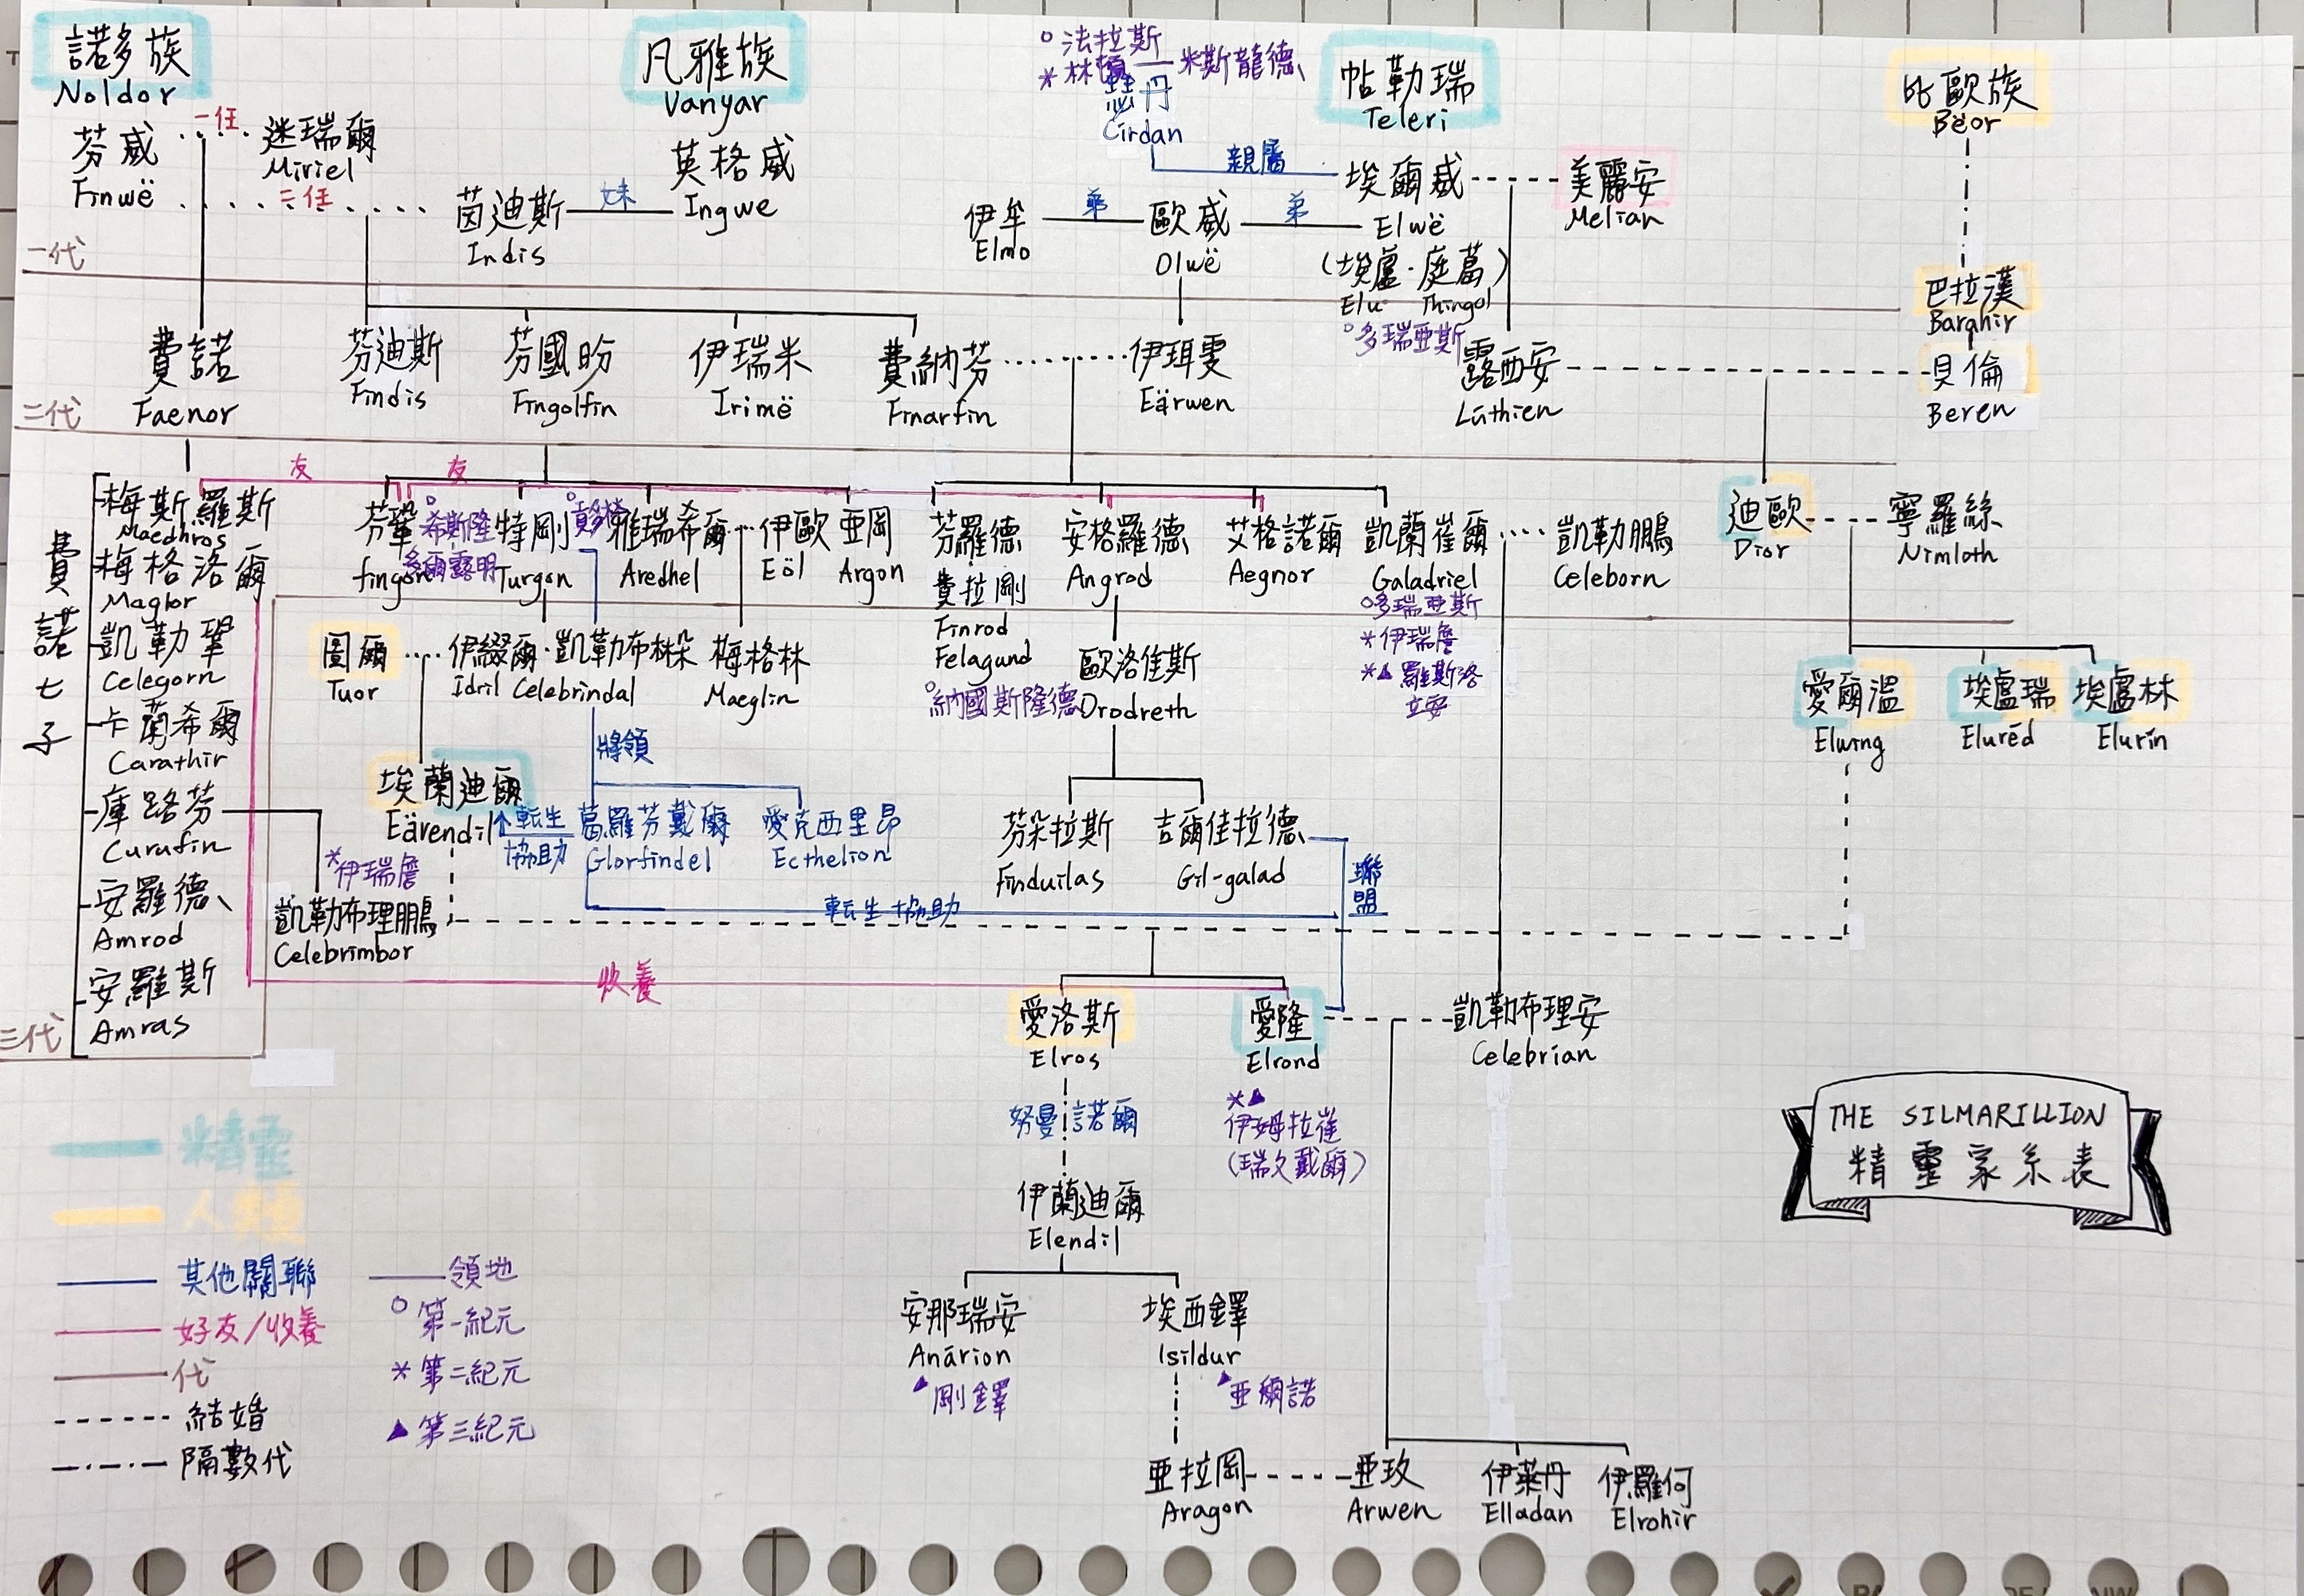 諾多族
Noldor
凡雅族
Vanyar
法拉斯
林頓 — 米斯龍德
丹
Círdan
帖勒瑞
Teleri
比歐族
Bëor
芬威
Finwë
一任
迷瑞爾
Miriel
二任
茵迪斯
Indis
妹
英格威
Ingwe
親屬
伊牟
Elmo
弟
歐威
Olwë
弟
埃爾威
Elwë
(埃盧·庭葛)
Elu Thingol
多瑞亞斯
美麗安
Melian
巴拉漢
Barahir
一代
費諾
Faenor
芬迪斯
Findis
芬國昐
Fingolfin
伊瑞米
Irimë
費納芬
Finarfin
伊珥雯
Eärwen
露西安
Lúthien
貝倫
Beren
二代
友
友
費諾七子
梅斯羅斯
Maedhros
梅格洛爾
Maglor
凱勒鞏
Celegorn
卡蘭希爾
Carathir
庫路芬
Curufin
安羅德
Amrod
安羅斯
Amras
三代
芬鞏
fingon
希斯隆
多爾露明
特剛
Turgon
雅瑞希爾
Aredhel
伊歐
Eöl
亞岡
Argon
芬羅德
費拉剛
Finrod
Felagund
納國斯隆德
安格羅德
Angrod
艾格諾爾
Aegnor
凱蘭崔爾
Galadriel
多瑞亞斯
*伊瑞詹
*▲羅斯洛
立安
凱勒鵬
Celeborn
迪歐
Dior
寧羅絲
Nimloth
圖爾
Tuor
伊綴爾·凱勒布林朵
Idril Celebrindal
梅格林
Maeglin
歐洛隹斯
Orodreth
愛爾溫
Elwing
埃盧瑞
Elurëd
埃盧林
Elurín
將領
埃蘭迪爾
Eärendil
↑転生
協助
葛羅芬戴爾
Glorfindel
愛克西里昂
Ecthelion
芬朵拉斯
Finduilas
吉爾佳拉德
Gil-galad
聯盟
*伊瑞詹
凱勒布理鵬
Celebrimbor
転生協助
收養
愛洛斯
Elros
愛隆
Elrond
凱勒布理安
Celebrian
努曼諾爾
*▲
伊姆拉崔
(瑞文戴爾)
THE SILMARILLION
精靈家系表
伊蘭迪爾
Elendil
安那瑞安
Anárion
▲剛鐸
埃西鐸
Isildur
▲亞爾諾
亞拉岡
Aragon
亞玫
Arwen
伊萊丹
Elladan
伊羅何
Elrohir
精靈
人類
其他關聯
好友/收養
代
結婚
隔數代
領地
○ 第一紀元
* 第二紀元
▲ 第三紀元